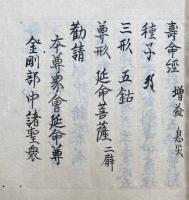 壽命經 增益 息災
種子
三形 五鈷
尊形 延命菩薩二臂
勸請
本尊界會延命尊
金剛部中諸聖衆